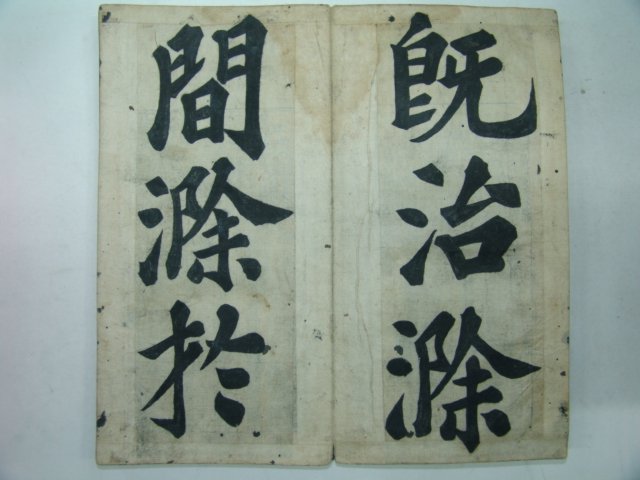 既治滁
間滁於